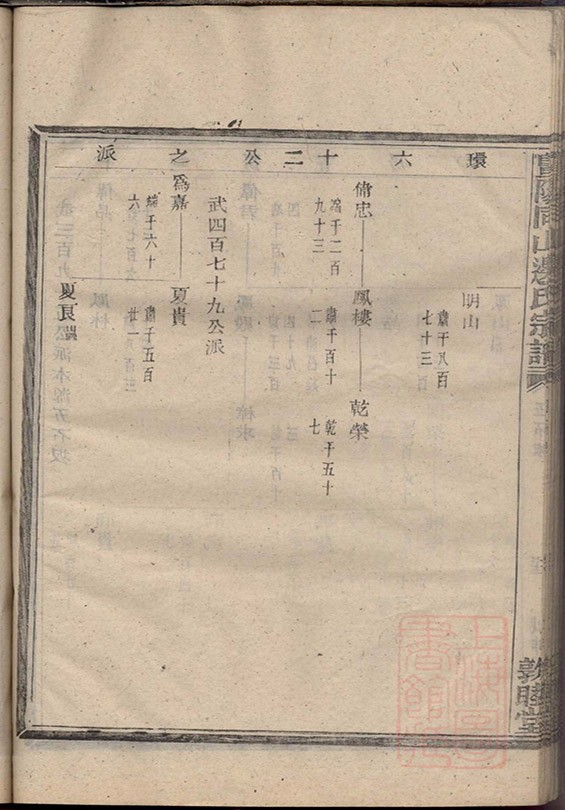 暨陽同山邊氏宗譜
敦睦堂
環六十二公之派
明山
肅千八百
七十三
脩忠 鳳樓 乾榮
端千二百
九十三
肅千百十
二
乾千五十
七
武四百七十九公派
爲嘉 夏貴
端千六十
六
肅千五百
廿一
夏良
上海圖書館藏